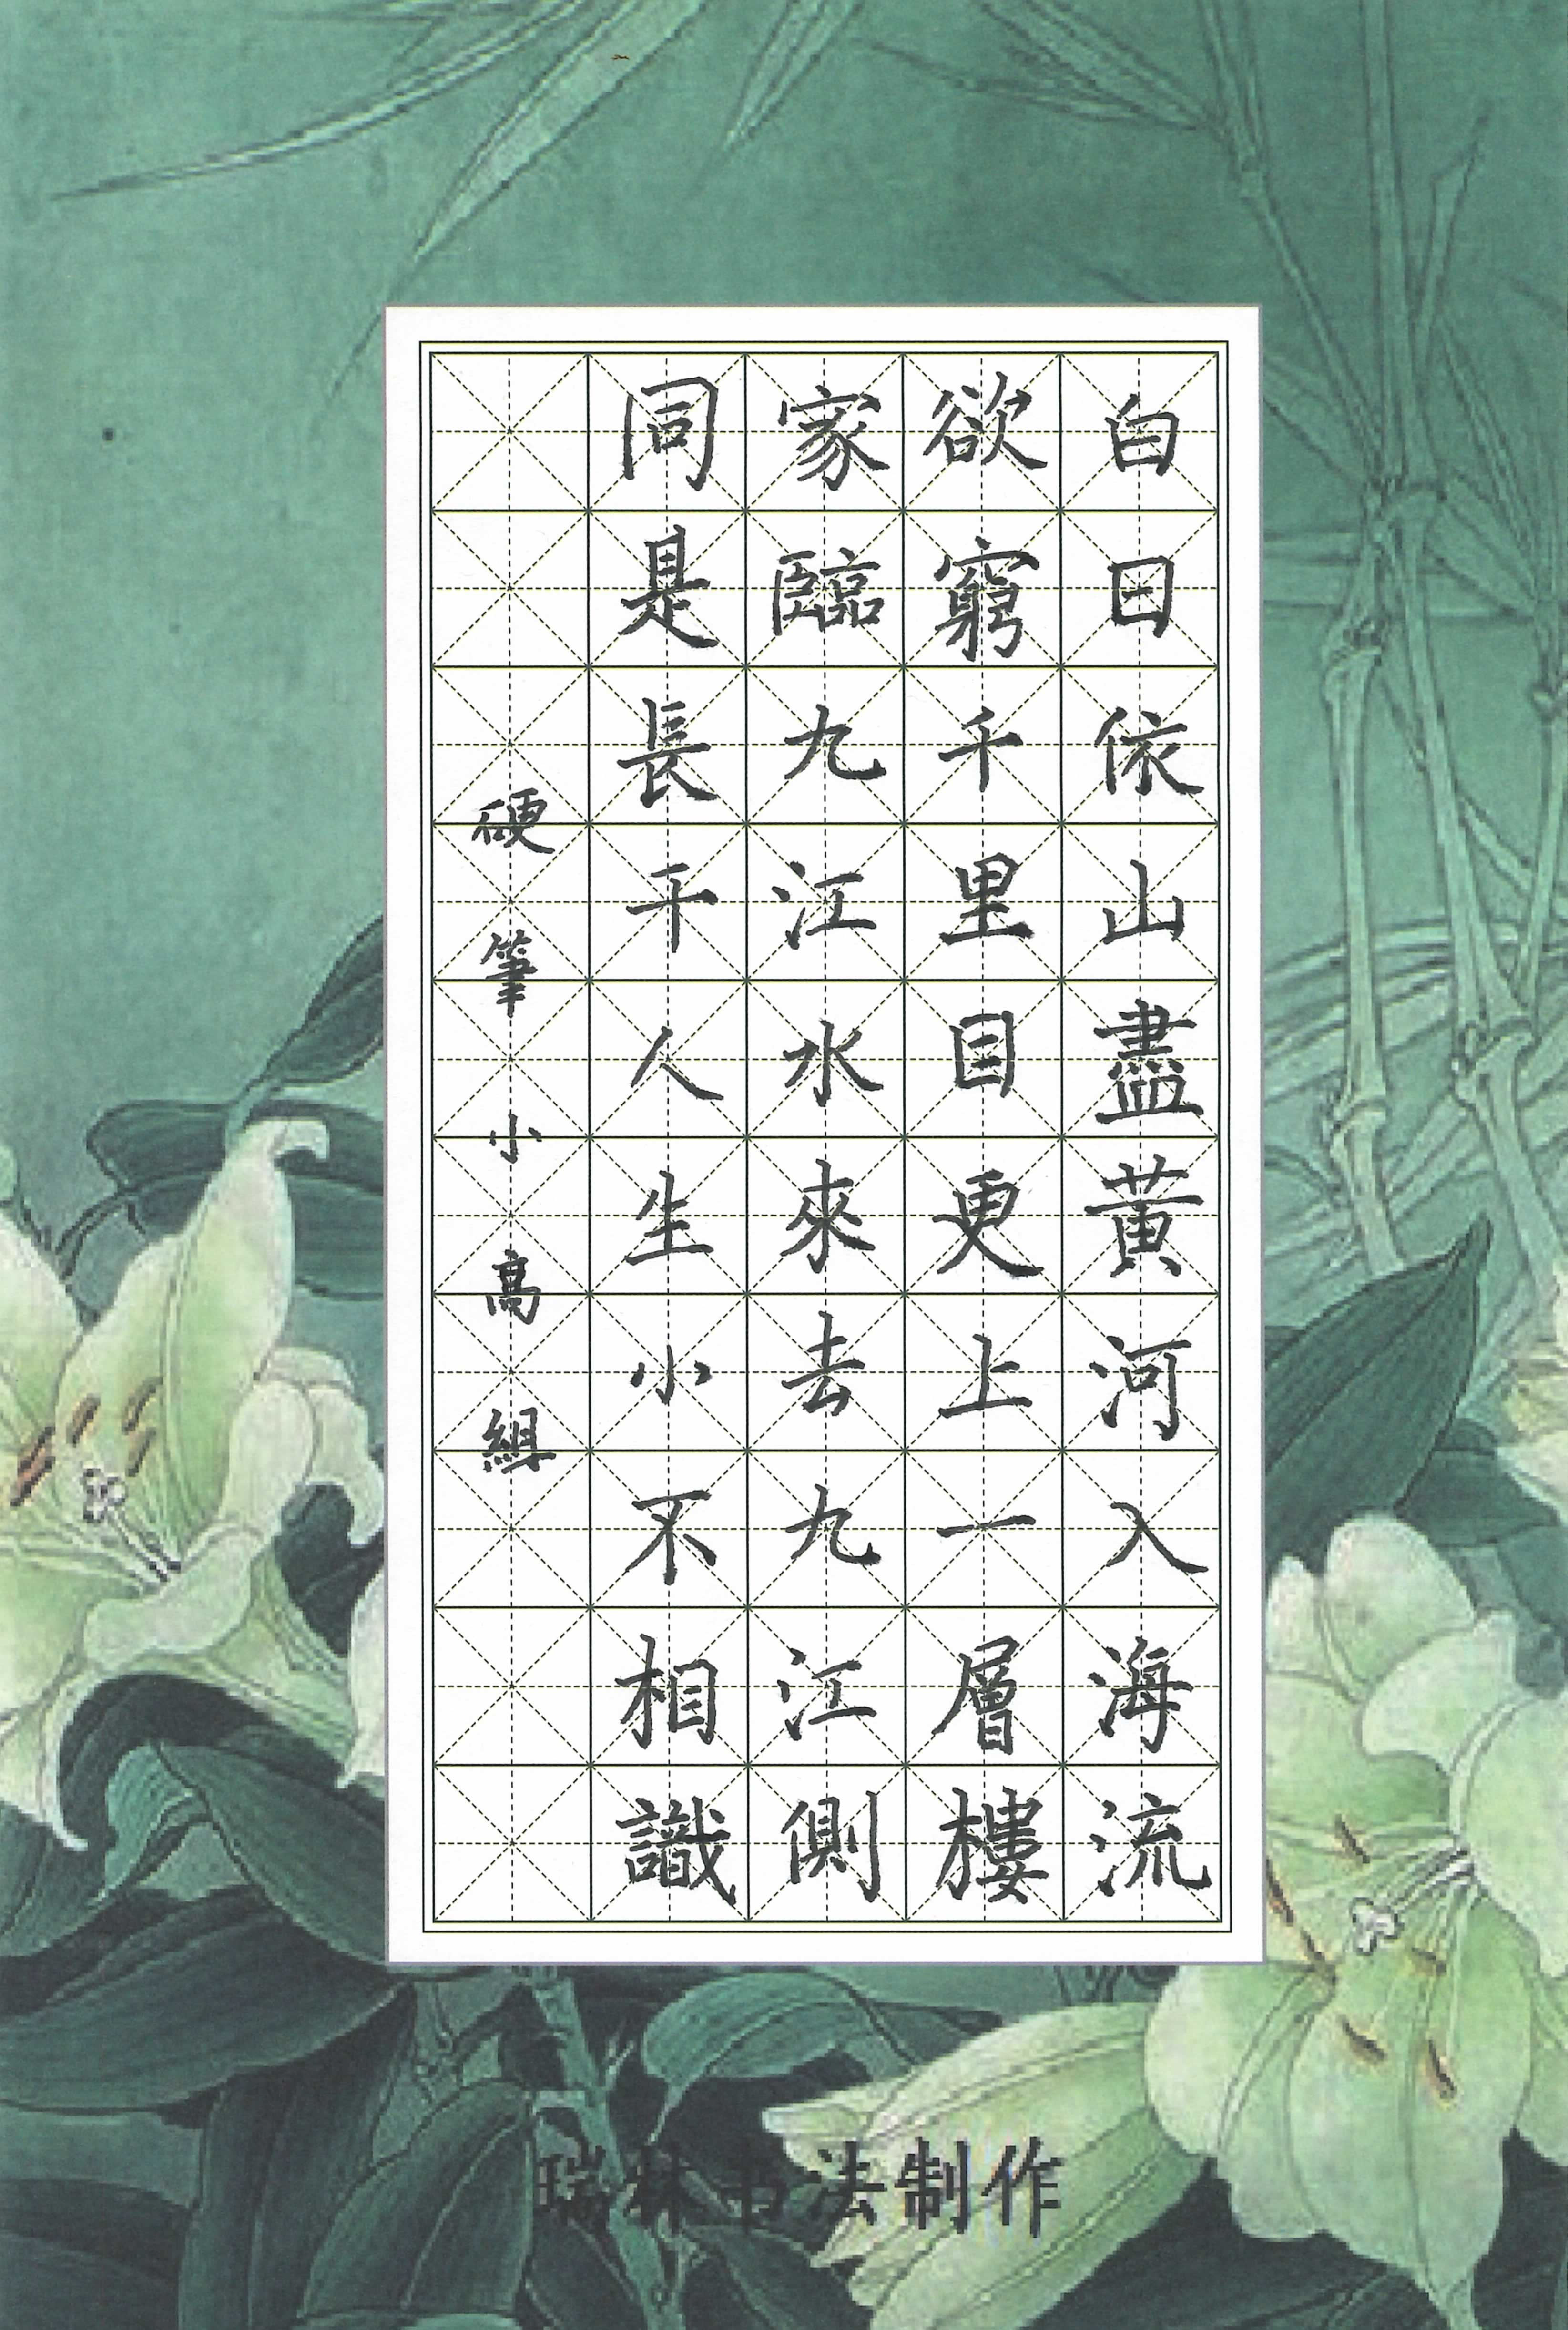 白日依山盡黃河入海流
欲窮千里目更上一層樓
家臨九江水來去九江側
同是長干人生小不相識
硬筆小高組
瑞林书法制作